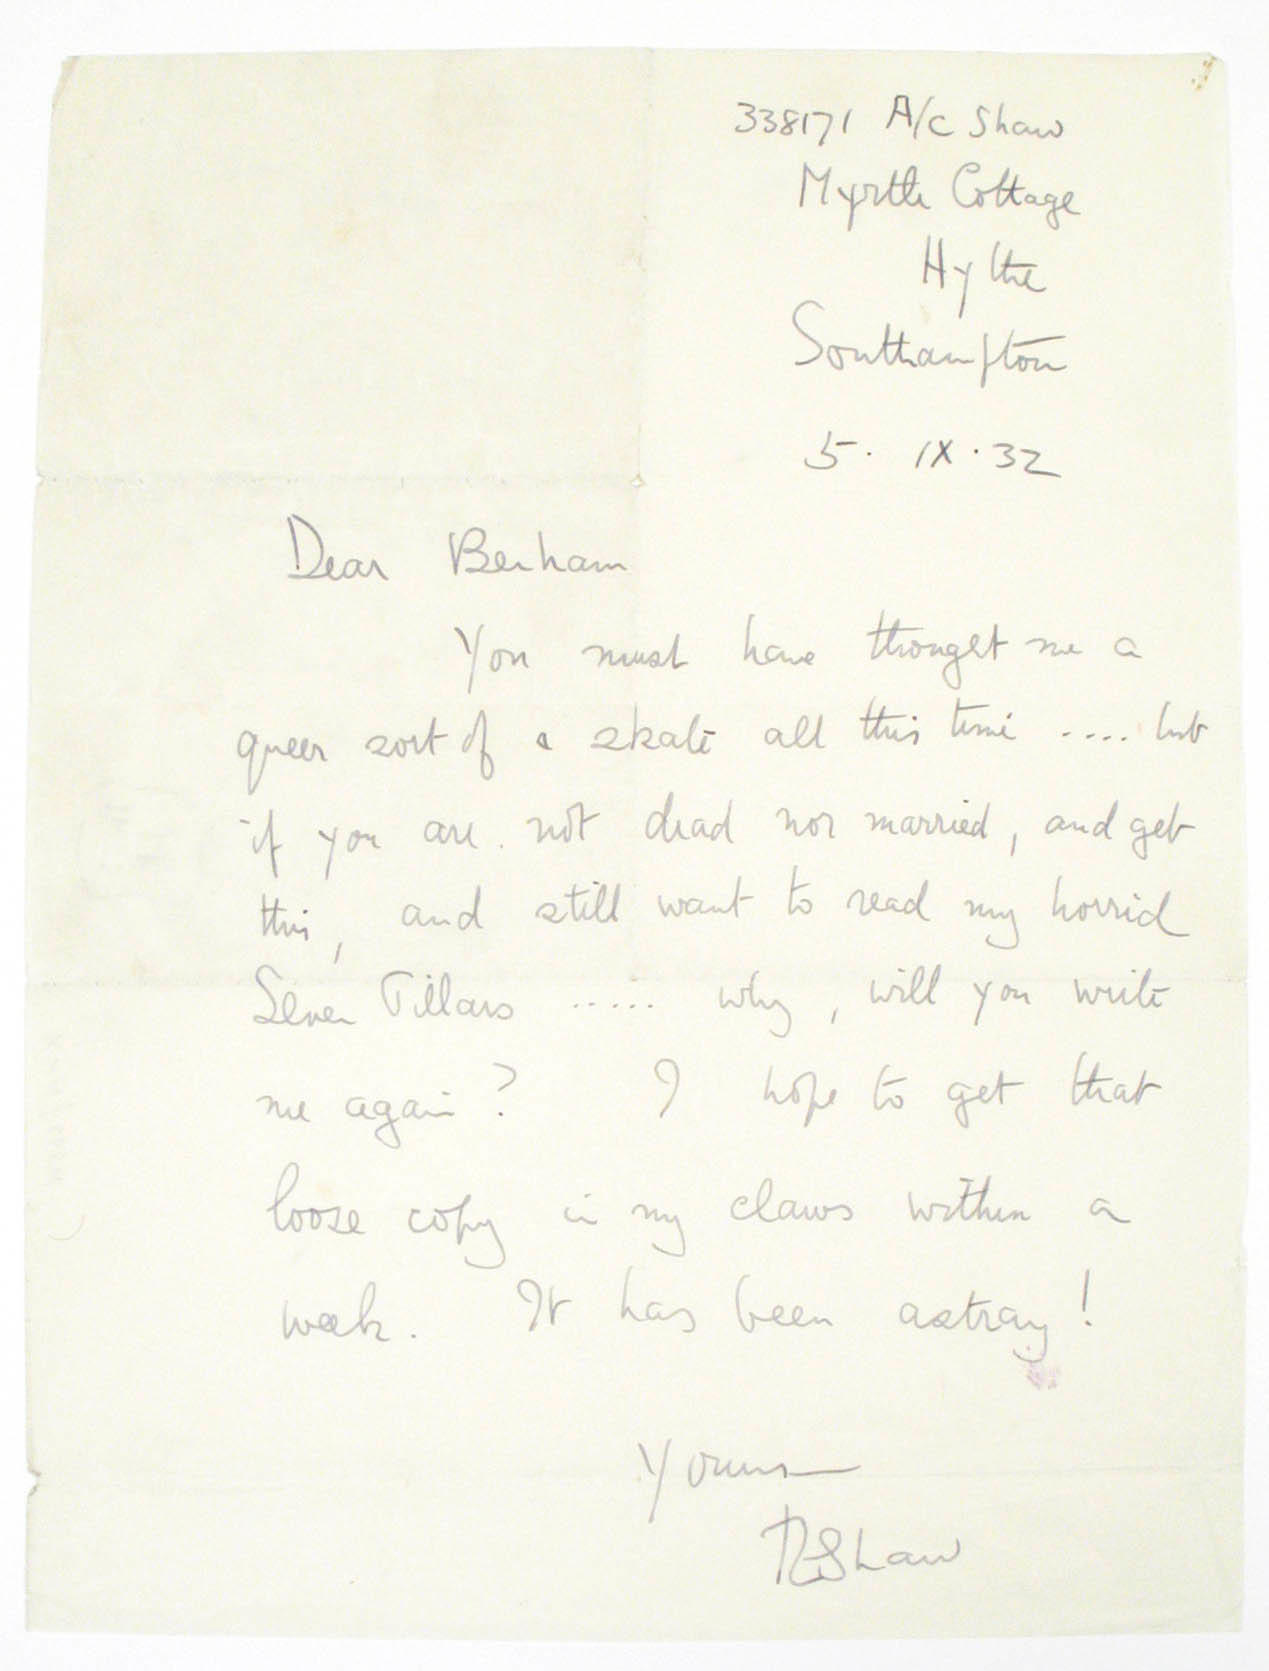 338171 A/C Shaw
Myrtle Cottage
Hythe
Southampton
5. IX. 32
Dear Benham
You must have thought me a
queer sort of a skate all this time .... but
if you are not dead nor married, and get
this, and still want to read my horrid
Seven Pillars ..... why, will you write
me again? I hope to get that
loose copy in my claws within a
week. It has been astray!
Yours
TEShaw